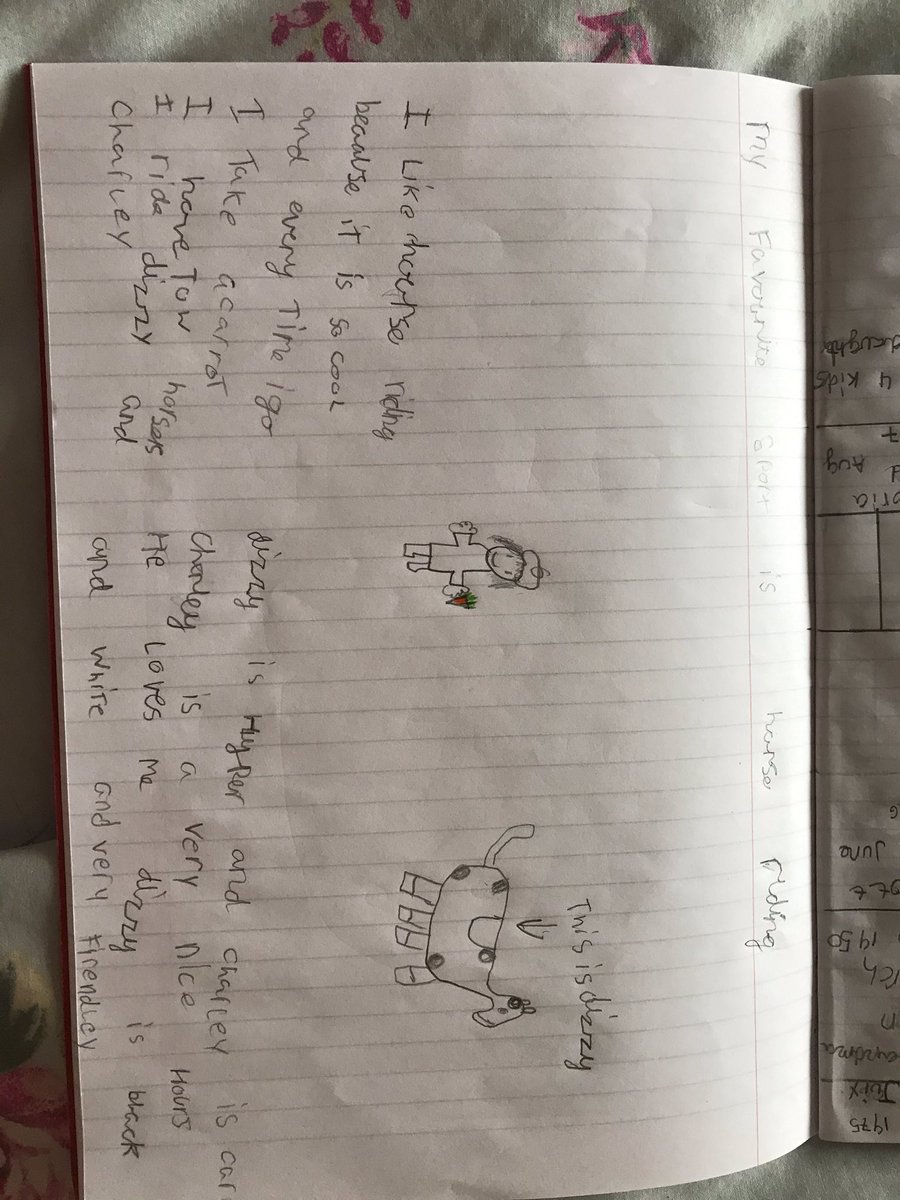 My Favourite sport is horse riding
I Like hourse riding
because it is so cool
and every Time i go
I Take a carrot
I have Tow horses
I ride dizzy and
Charley
This is dizzy
dizzy is Hyper and charley is car
Charley is a very nice Hours
He Loves me dizzy is black
and white and very firendley
1975
Twix
1950
June
Aug
4 kids